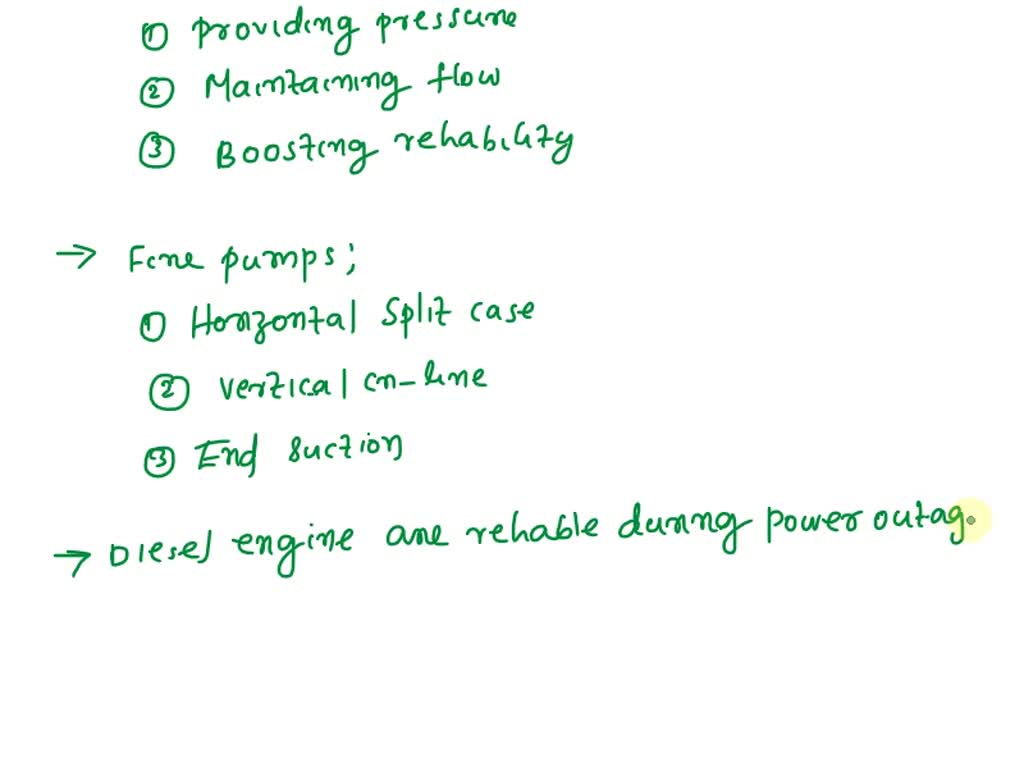 ① Providing pressure
② Maintaining flow
③ Boosting reliability
→ Fire pumps;
① Horizontal Split case
② Vertical in-line
③ End Suction
→ Diesel engine are reliable during power outag